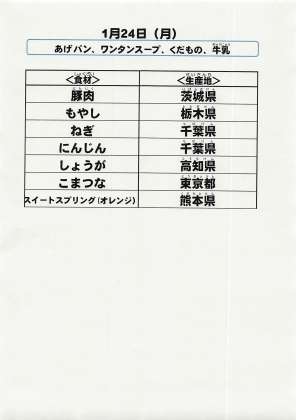 1月24日（月）
あげパン、ワンタンスープ、くだもの、牛乳
＜食材＞ ＜生産地＞
豚肉 茨城県
もやし 栃木県
ねぎ 千葉県
にんじん 千葉県
しょうが 高知県
こまつな 東京都
スイートスプリング(オレンジ) 熊本県